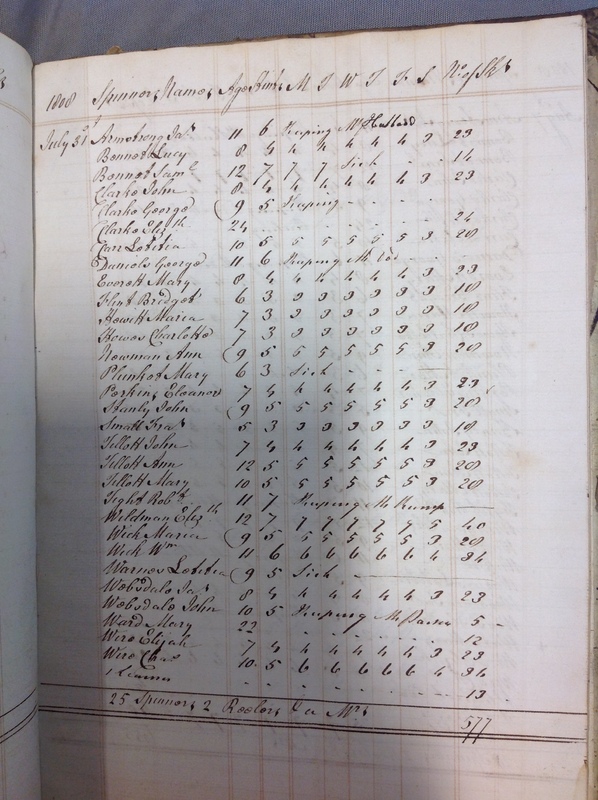 1808 Spinners Names Age Stint M T W T F S No. of Sks
July 31st Armstrong Jas 11 6 Keeping Mr Hubbard
Bennet Lucy 8 4 4 4 4 4 4 3 23
Bennet Saml 12 7 7 7 Sick - - 14
Clarke John 8 4 4 4 4 4 4 3 23
Clarke George 9 5 Keeping - - - -
Clarke Elizth 24 - - - - - - 24
Carr Letitia 10 5 5 5 5 5 5 3 28
Daniels George 11 6 Keeping Mr
Everett Mary 8 4 4 4 4 4 4 3 23
Flint Bridget 6 3 3 3 3 3 3 3 18
Howitt Maria 7 3 3 3 3 3 3 3 18
Howes Charlotte 7 3 3 3 3 3 3 3 18
Newman Ann 9 5 5 5 5 5 5 3 28
Plunket Mary 6 3 Sick - - -
Perkins Eleanor 7 4 4 4 4 4 4 3 23
Stanly John 9 5 5 5 5 5 5 3 28
Smatt Fras 5 3 3 3 3 3 3 3 18
Tillott John 7 4 4 4 4 4 4 3 23
Tillott Ann 12 5 5 5 5 5 5 3 28
Tillott Mary 10 5 5 5 5 5 5 3 28
Tight Robt 11 7 Keeping Mr Kemp
Wildman Elizth 12 7 7 7 7 7 7 5 40
Wick Maria 9 5 5 5 5 5 5 3 28
Wick Wm 11 6 6 6 6 6 6 4 34
Warnes Letitia 9 5 Sick
Websdale Jas 8 4 4 4 4 4 4 3 23
Websdale John 10 5 Keeping Mr 5
Ward Mary 22 - - - - - - 12
Wire Elijah 7 4 4 4 4 4 4 3 23
Wire Chas 10 5 6 6 6 6 6 4 34
1 Learner - - - - - - 13
25 Spinners 2 Reelers
577